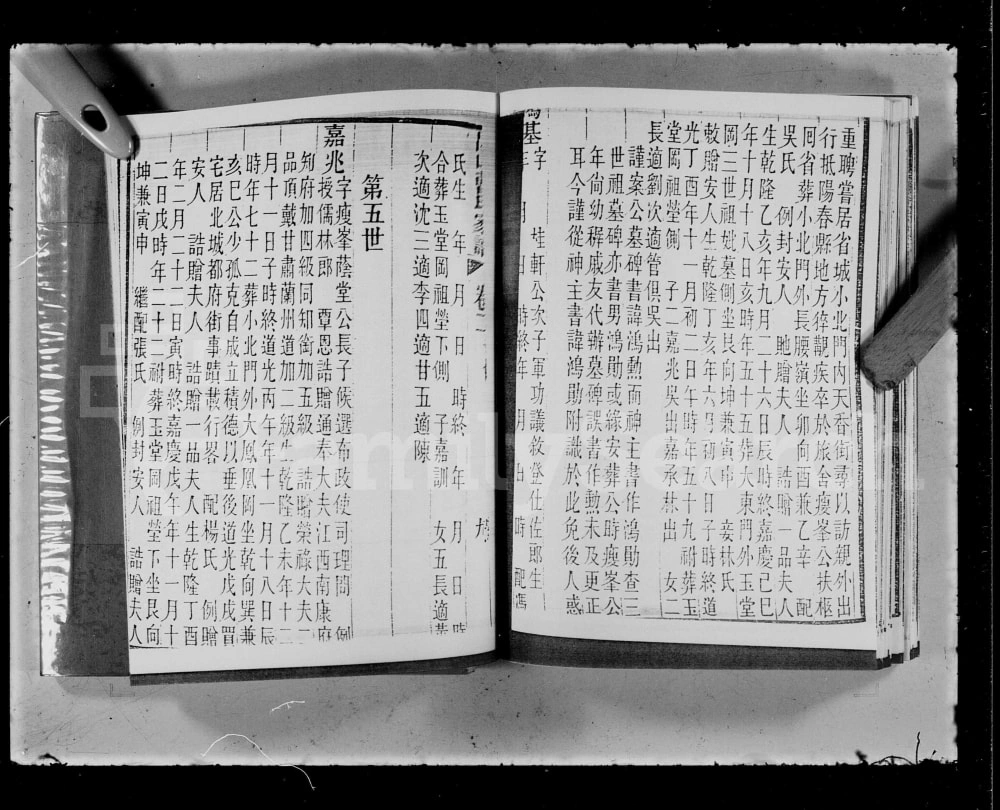 重聘嘗居省城小北門內天香街尋以訪親外出
行抵陽春縣地方猝覯疾卒於旅舍瘦峯公扶柩
囘省葬小北門外長腰嶺坐卯向酉兼乙辛 配
吳氏 例封安人 貤贈夫人 誥贈一品夫人
生乾隆乙亥年九月二十六日辰時終嘉慶己巳
年十月十八日亥時年五十五葬大東門外玉堂
岡三世祖妣墓側坐艮向坤兼寅申 妾林氏
敕贈安人生乾隆丁亥年六月初八日子時終道
光丁酉年十一月初二日午時年五十九祔葬玉
堂岡祖塋側 子二嘉兆吳出嘉承林出 女二
長適劉次適管俱吳出
謹案公墓碑書諱鴻勳而神主書作鴻勛查三
世祖墓碑亦書男鴻勛或緣安葬公時瘦峯公
年尙幼稺戚友代辦墓碑誤書作勳未及更正
耳今謹從神主書諱鴻勛附識於此免後人惑
基字 桂軒公次子軍功議敘登仕佐郎生
年 月 日 時終 年 月 日 時
氏生 年 月 日 時終 年 月 日 時
合葬玉堂岡祖塋下側 子嘉訓 女五長適黃
次適沈三適李四適甘五適陳
第五世
嘉兆字瘦峯蔭堂公長子候選布政使司理問 例
授儒林郎 覃恩誥贈通奉大夫江西南康府
知府加四級同知銜加五級 誥贈榮祿大夫二
品頂戴甘肅蘭州道加二級生乾隆乙未年十二
月十一日子時終道光丙午年十一月十八日辰
時年七十二葬小北門外大鳳凰岡坐乾向巽兼
亥巳公少孤克自成立積德以垂後道光戊戌置
宅居北城都府街事蹟載行畧 配楊氏 例贈
安人 誥贈夫人 誥贈一品夫人生乾隆丁酉
年二月二十二日寅時終嘉慶戊午年十一月十
二日戌時年二十二祔葬玉堂岡祖塋下坐艮向
坤兼寅申 繼配張氏 例封安人 誥贈夫人